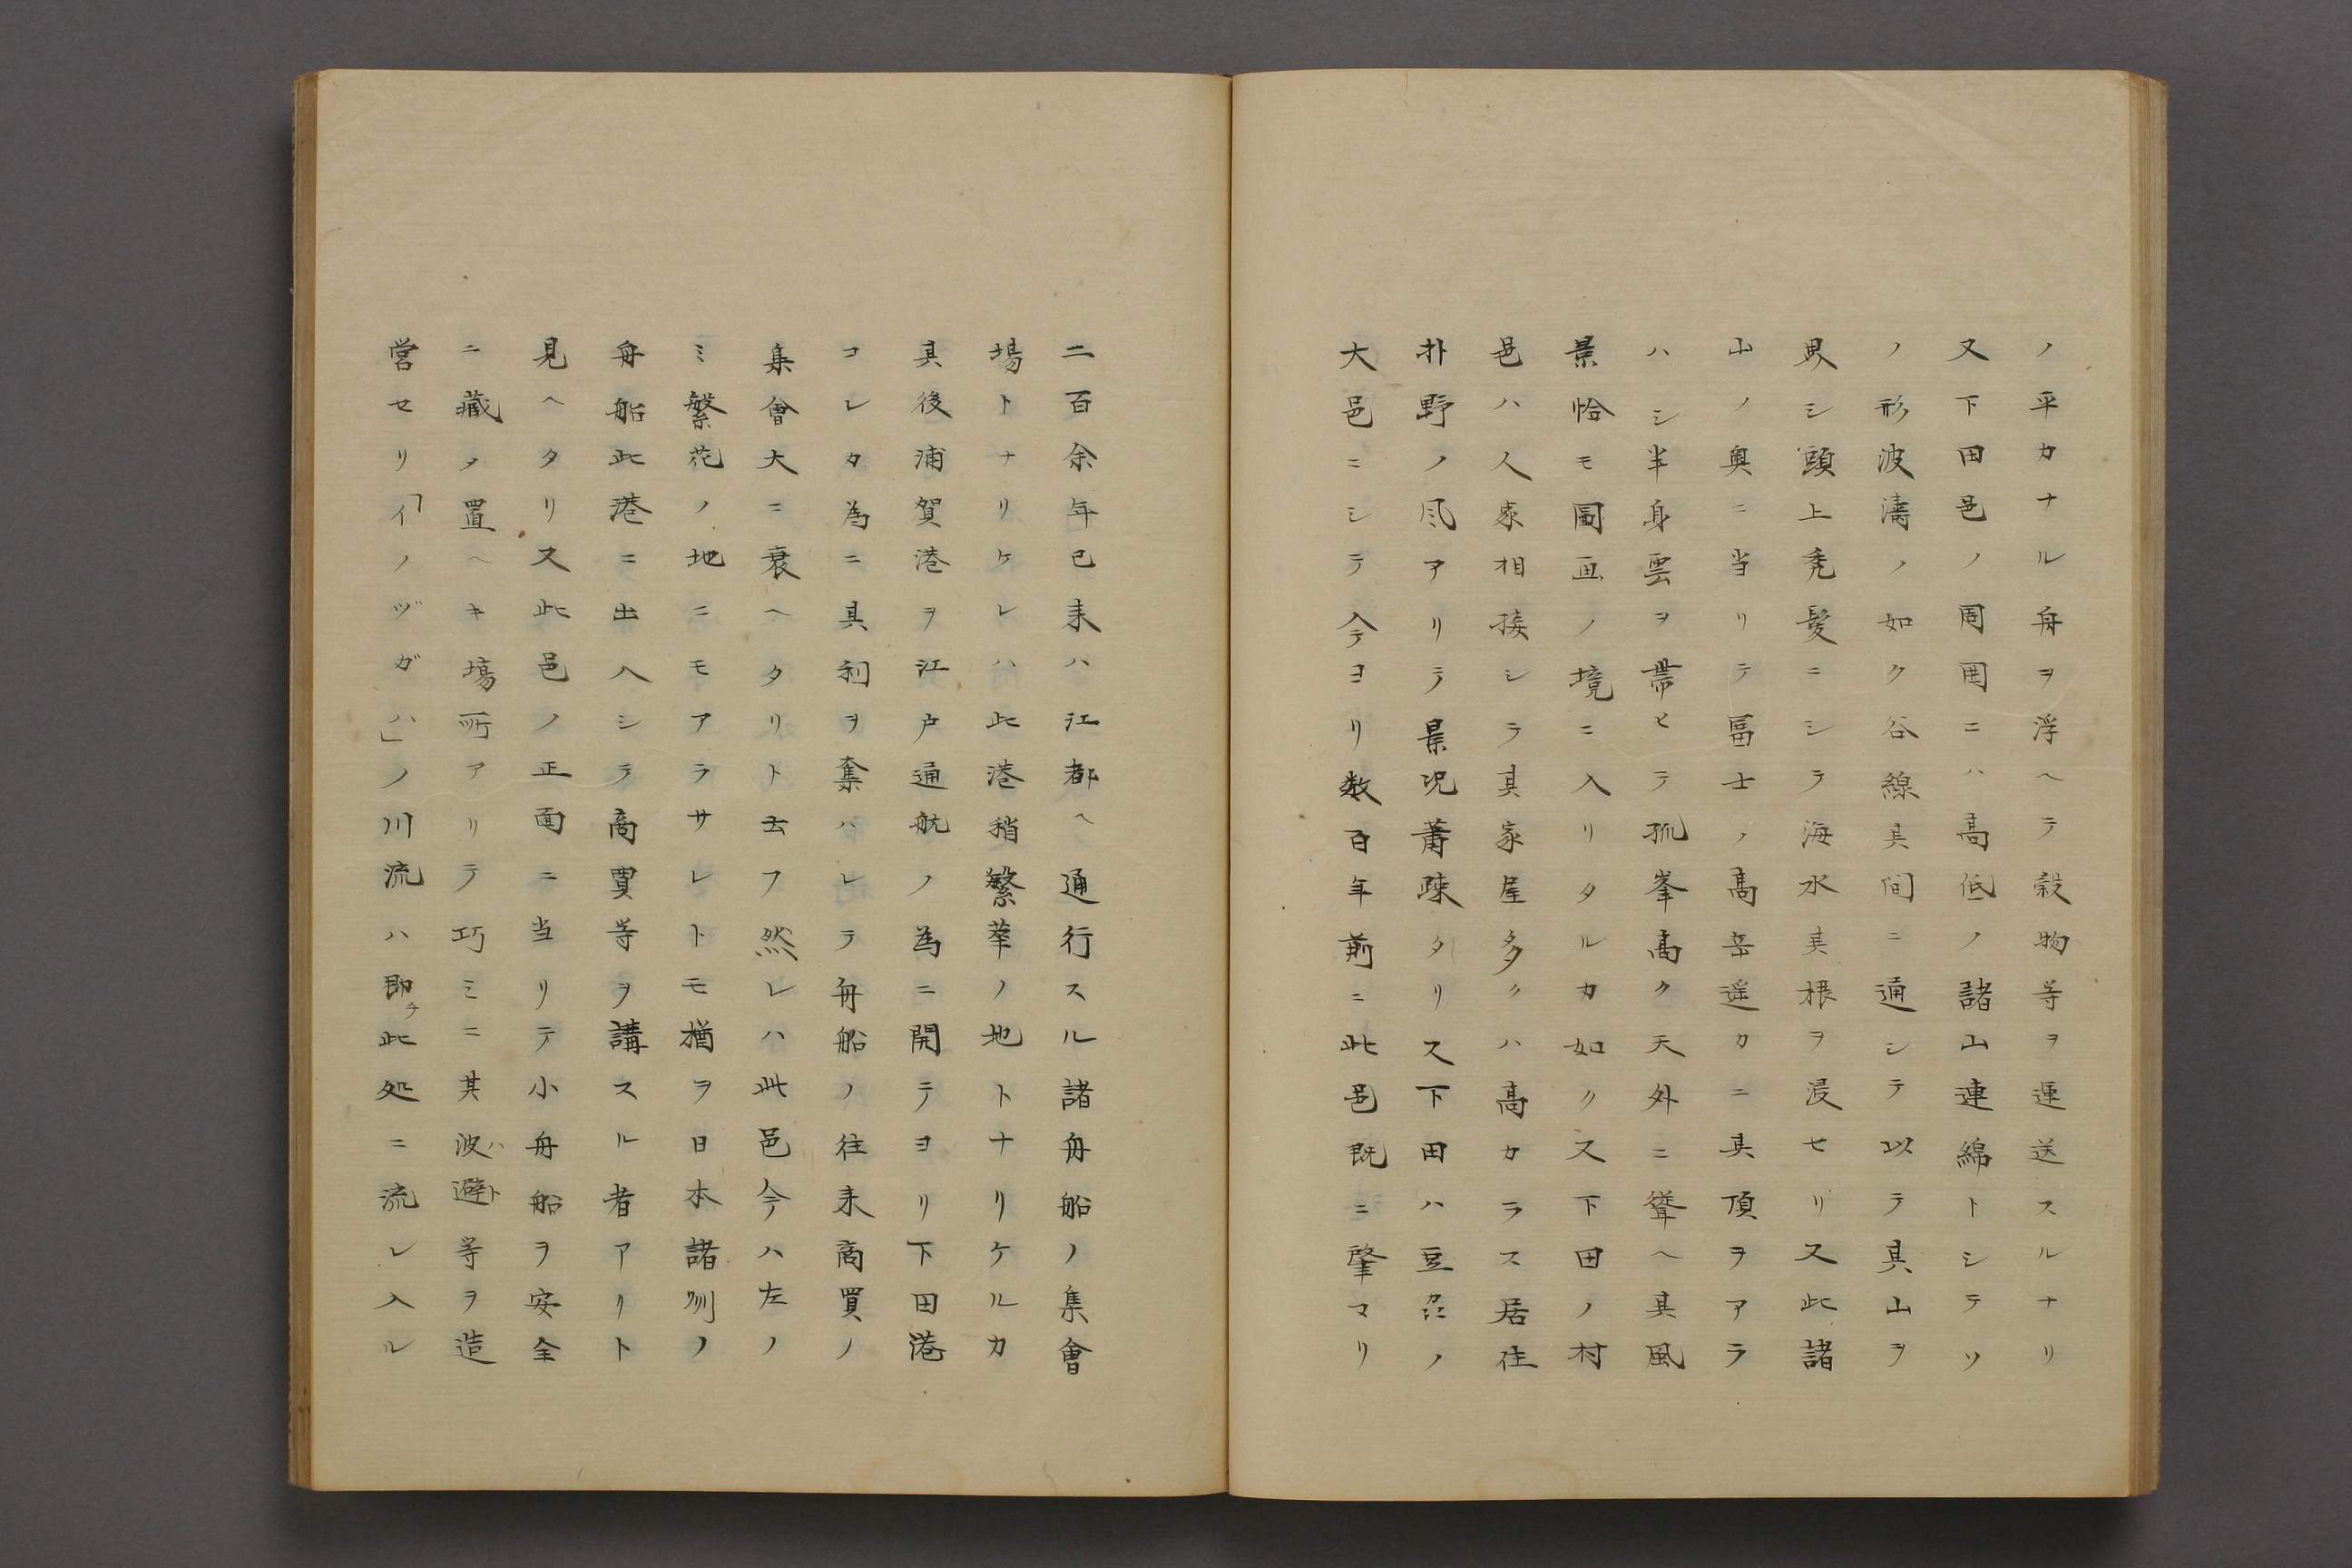 ノ平カナル舟ヲ浮ヘテ穀物等ヲ運送スルナリ
又下田邑ノ周囲ニハ高低ノ諸山連綿トシテソ
ノ形波濤ノ如ク谷線其間ニ通シテ以テ其山ヲ
界シ頭上禿髪ニシテ海水其根ヲ浸セリ又此諸
山ノ奥ニ当リテ冨士ノ高岳遥カニ其頂ヲアラ
ハシ半身雲ヲ帯ヒテ孤峯高ク天外ニ聳ヘ其風
景恰モ圖画ノ境ニ入リタルカ如ク又下田ノ村
邑ハ人家相接シテ其家屋多クハ高カラス居住
朴野ノ風アリテ景况蕭疎タリ又下田ハ豆州ノ
大邑ニシテ今ヨリ数百年前ニ此邑既ニ肇マリ
二百余年已来ハ江都ヘ通行スル諸舟船ノ集會
場トナリケレハ此港稍繁華ノ地トナリケルカ
其後浦賀港ヲ江戸通航ノ為ニ開テヨリ下田港
コレカ為ニ其利ヲ奪ハレテ舟船ノ往来商買ノ
集會大ニ衰ヘタリト云フ然レハ此邑今ハ左ノ
ミ繁花ノ地ニモアラサレトモ猶ヲ日本諸州ノ
舟船此港ニ出入シテ商買等ヲ講スル者アリト
見ヘタリ又此邑ノ正面ニ当リテ小舟船ヲ安全
ニ藏メ置ヘキ塲所アリテ巧ミニ其波避ハト等ヲ造
営セリ「イノヅガハ」ノ川流ハ即チ此処ニ流レ入ル